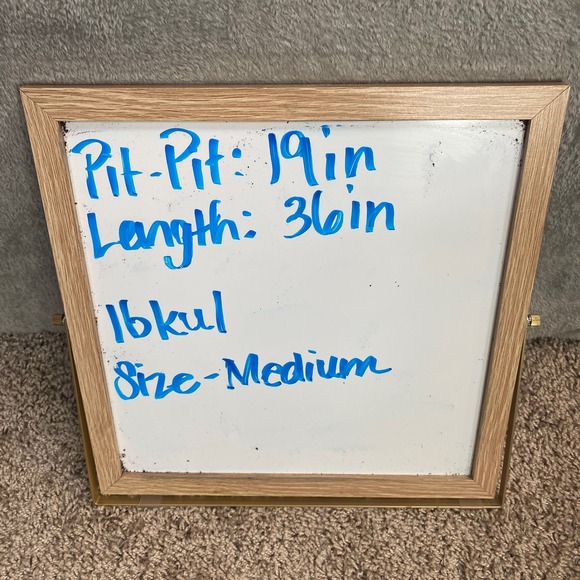 Pit-Pit: 19in
Length: 36in
16kul
Size-Medium